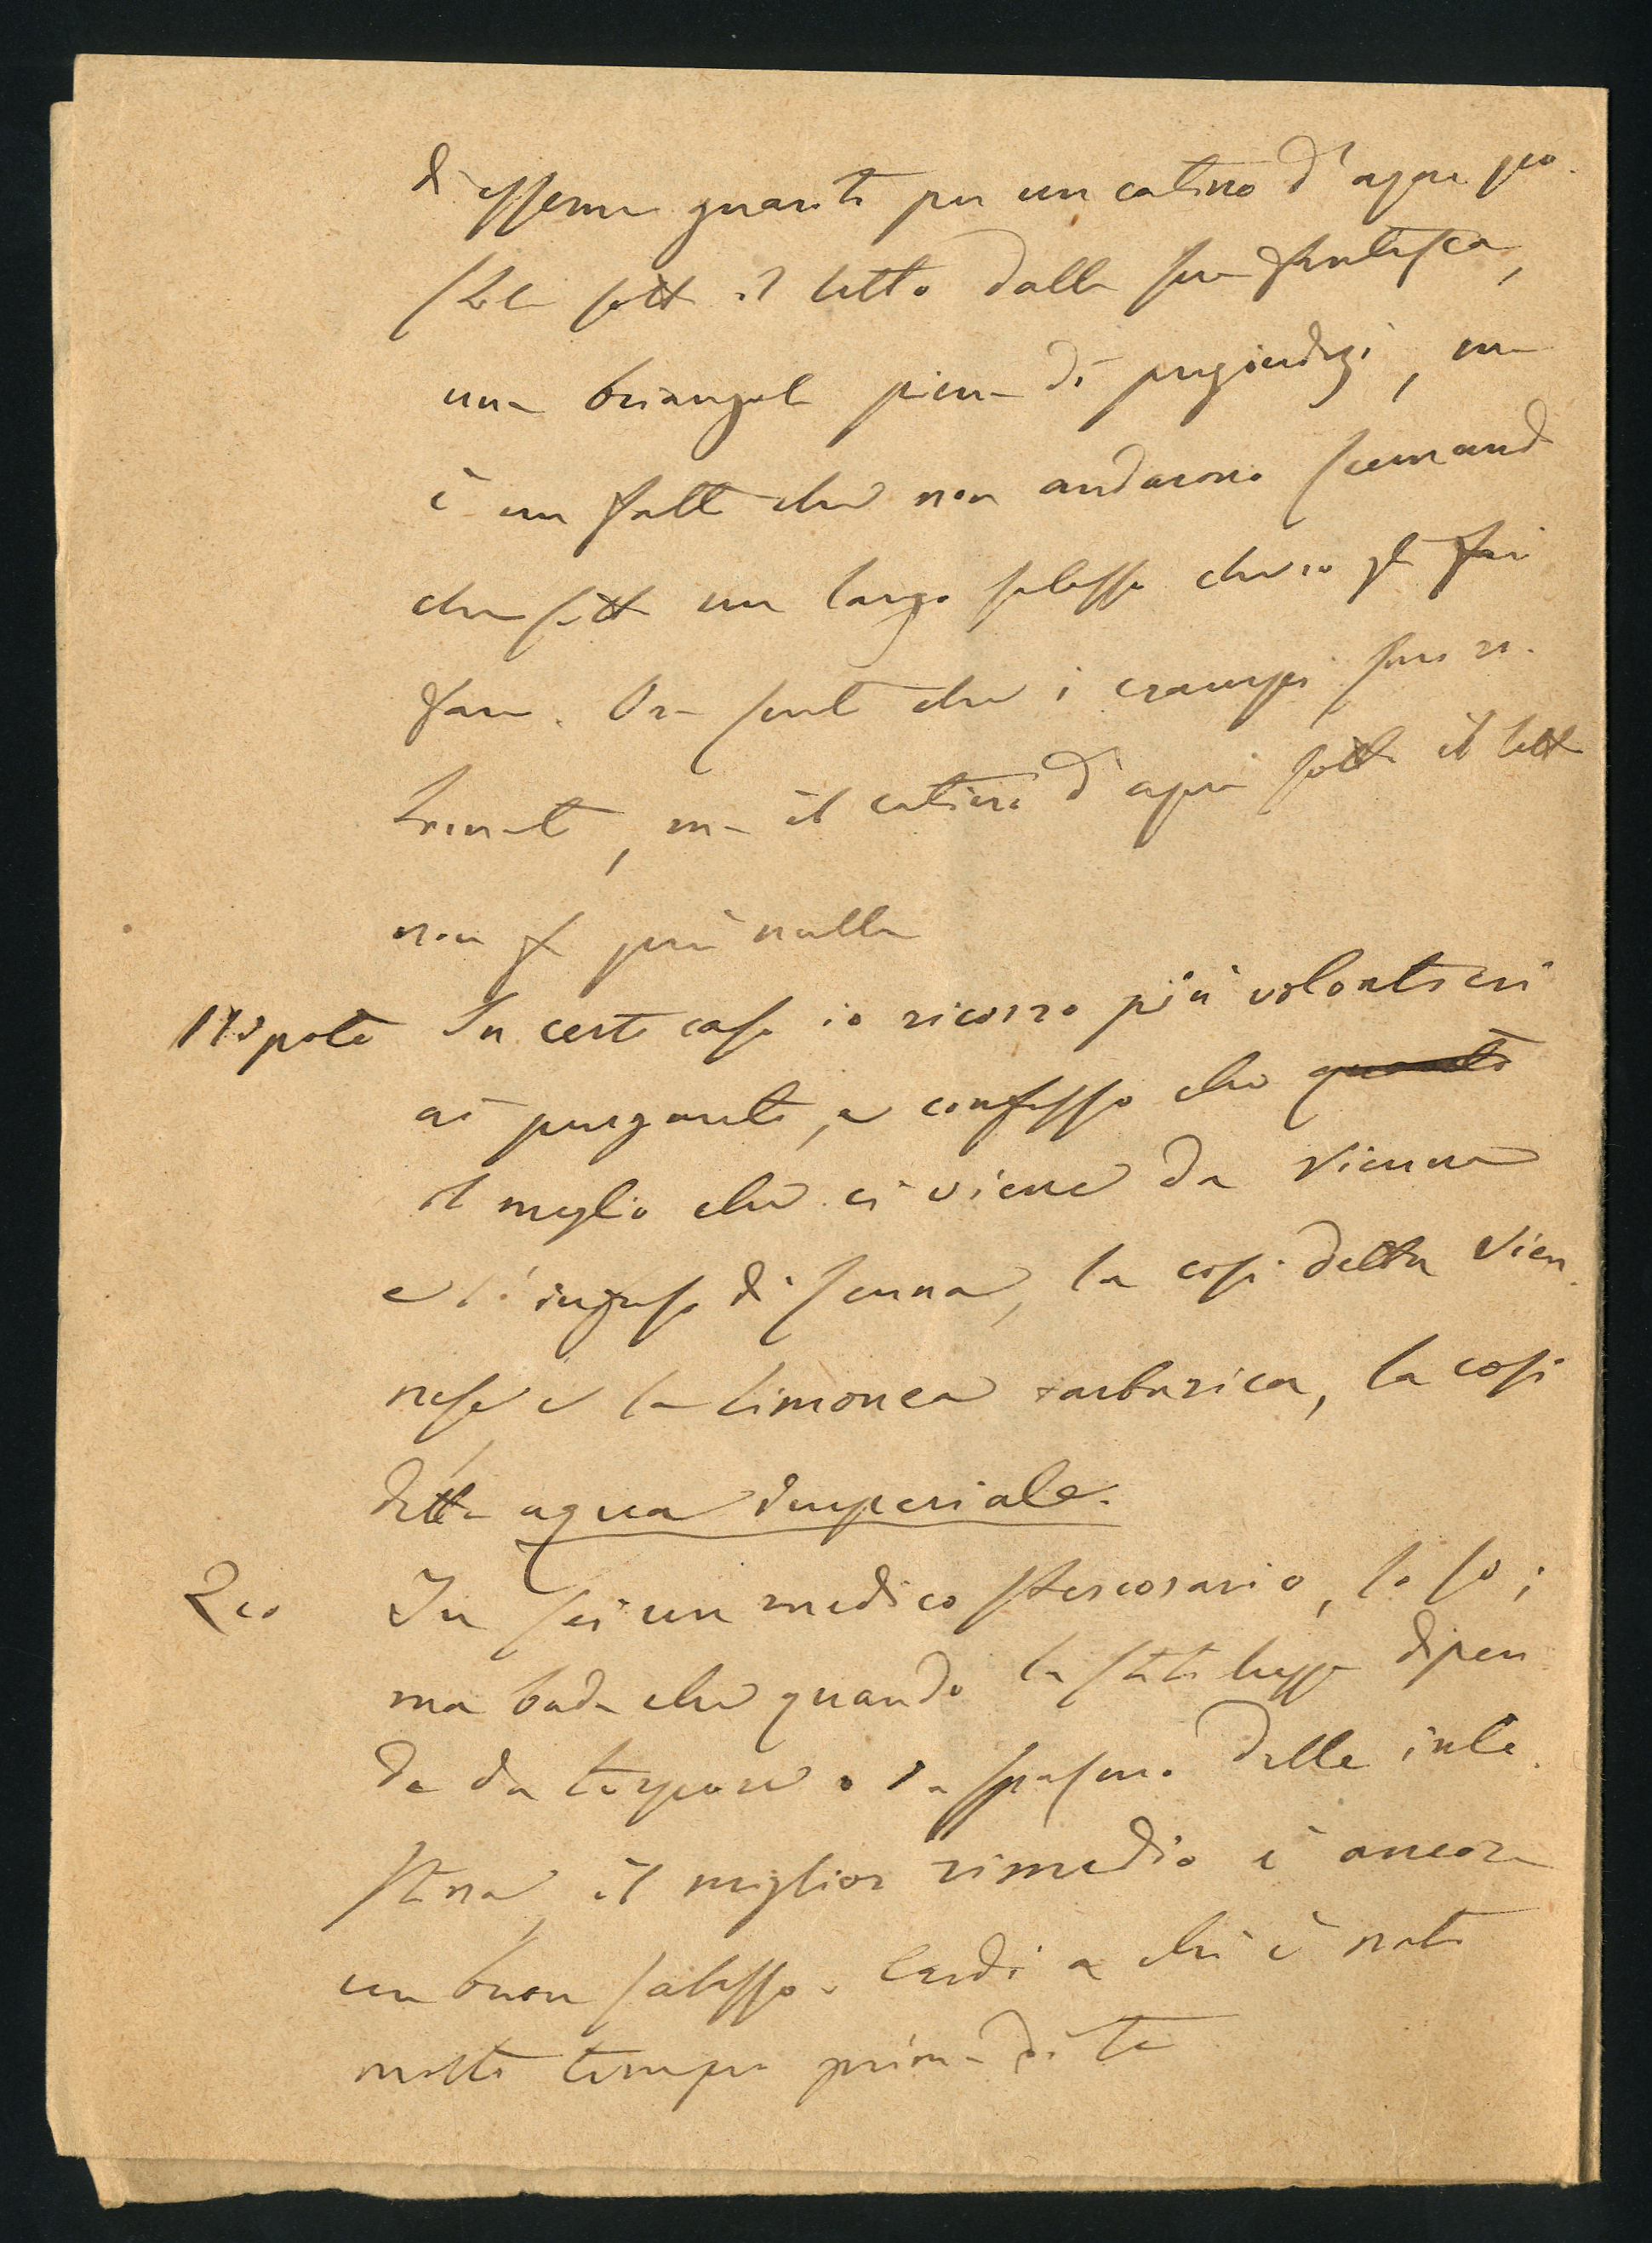 d'essere guarito per un catino d'aqua po-
stole sotto il letto dalla sua fantesca,
una brianzola piena di pregiudizi, ma
è un fatto che non andarono scemando
che sotto un largo salasso ch'io gli feci
fare. Ora sento che i crampi sono ri-
tornati, ma il catino d'aqua sotto il letto
non fa più nulla
Nipote In certi casi io ricorro più volontieri
ai purganti, e confesso che quanto
il meglio che ci viene da Vienna
è l'infuso di senna, la così detta Vien-
nese e la limonea tartarica, la così
detta aqua imperiale.
Zio Tu sei un medico stercorario, lo so;
ma bada che quando la stitichezza dipen
de da torpore o da spasmo delle inte-
stina, il miglior rimedio è ancora
un buon salasso. Credi a chi è nato
molto tempo prima di te